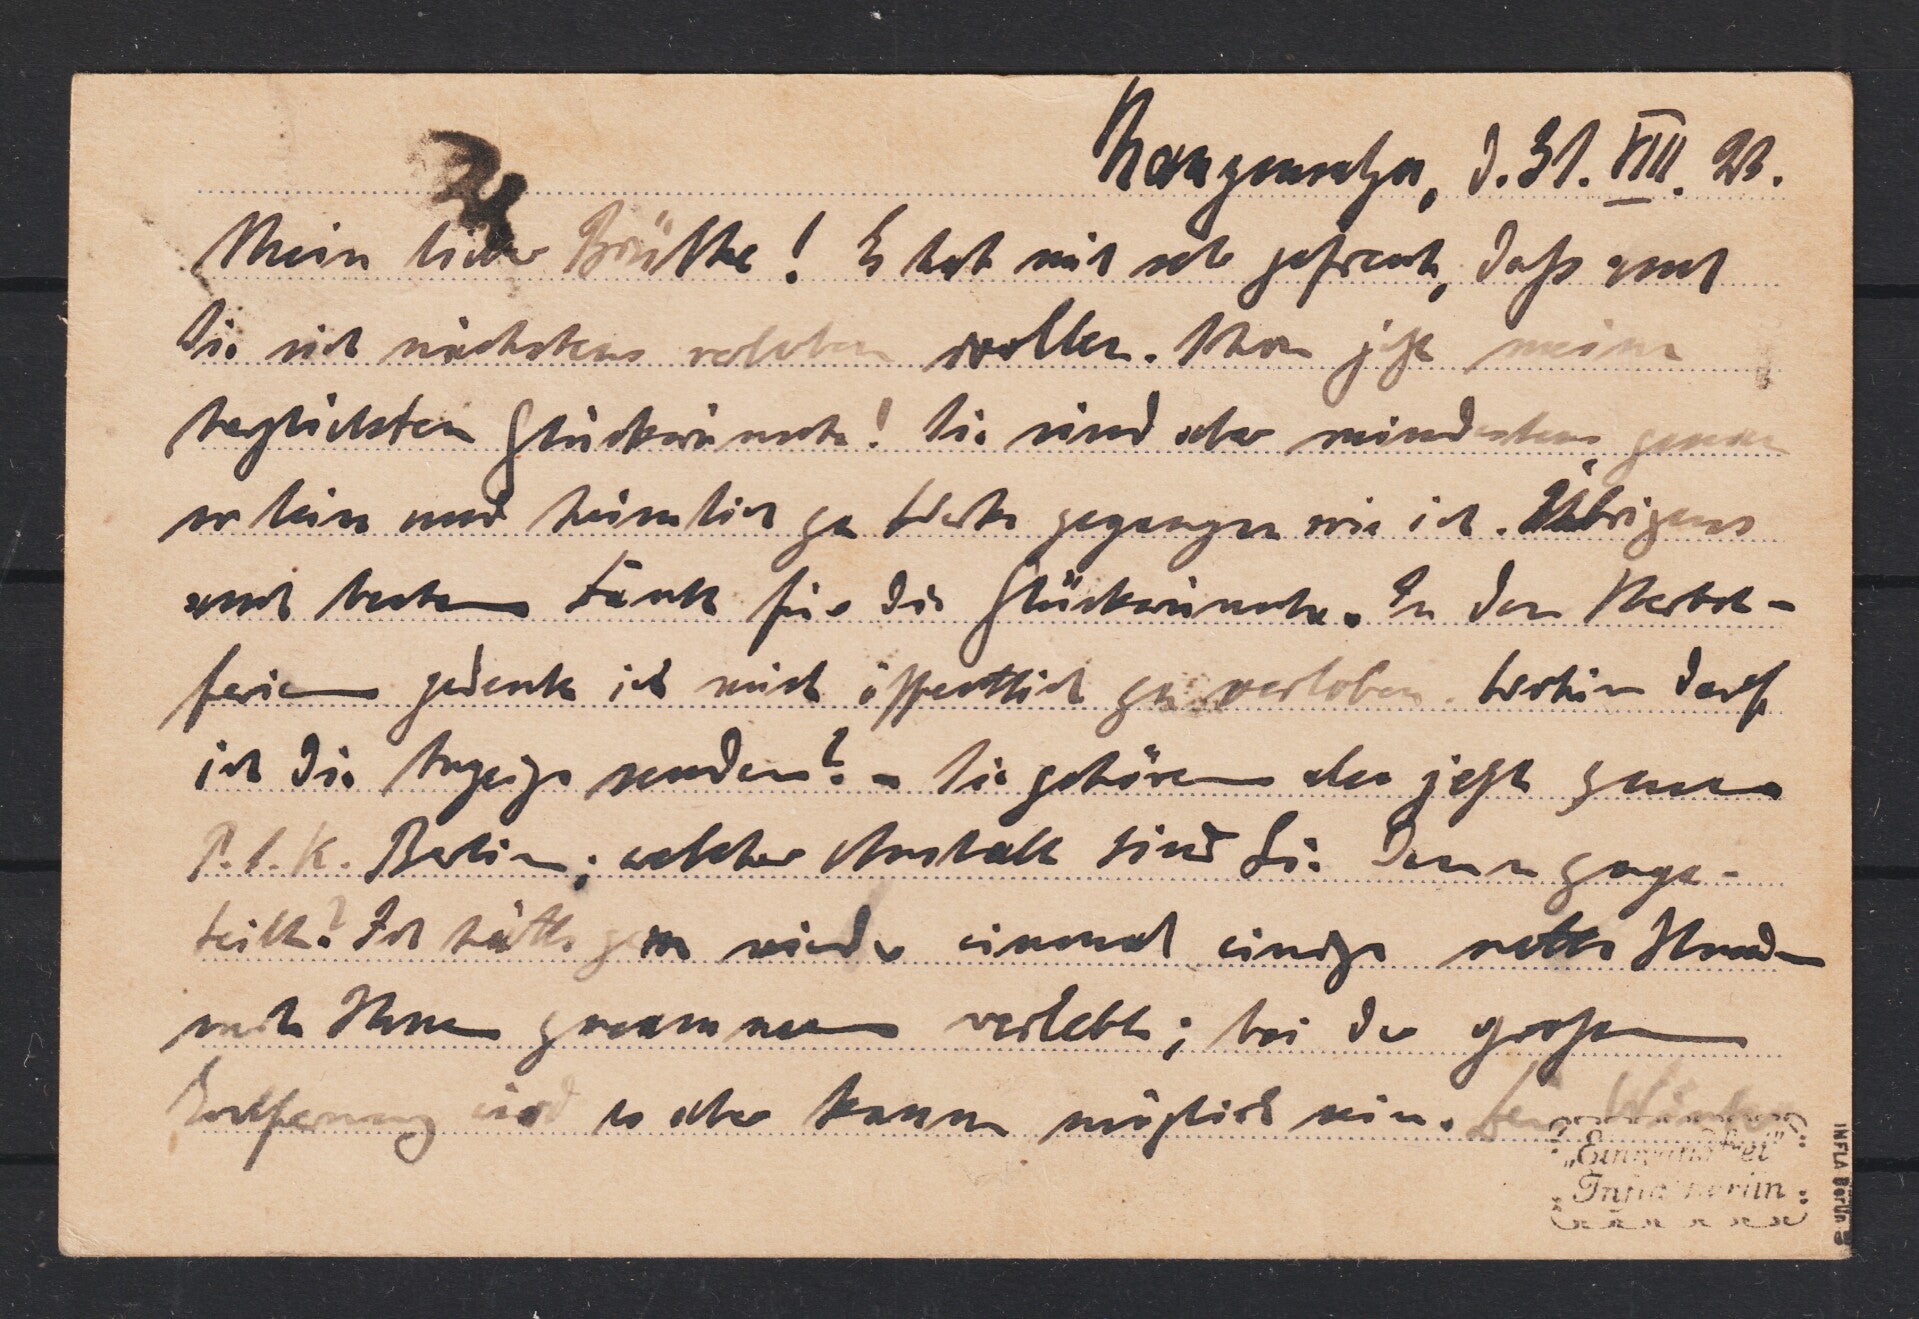 d. 31. VIII. 23.
Mein lieber! Es hat mich sehr gefreut, daß auch
Sie sich nächstens verloben wollen. Schon jetzt meine
herzlichsten Glückwünsche! Sie sind aber mindestens genau
so leise und heimlich zu Werke gegangen wie ich. Übrigens
auch besten Dank für die Glückwünsche. In den Herbst-
ferien gedenke ich mich öffentlich zu verloben. Wohin darf
ich die Anzeige senden? - Sie gehören aber jetzt zum
P.S.K. Berlin; welcher Anstalt sind Sie denn zuge-
teilt? Ich hätte gern wieder einmal einige nette Stunden
mit Ihnen zusammen verlebt; bei der großen
Entfernung wird es aber kaum möglich sein.
"Einwandfrei"
Infla Berlin
INFLA Berlin